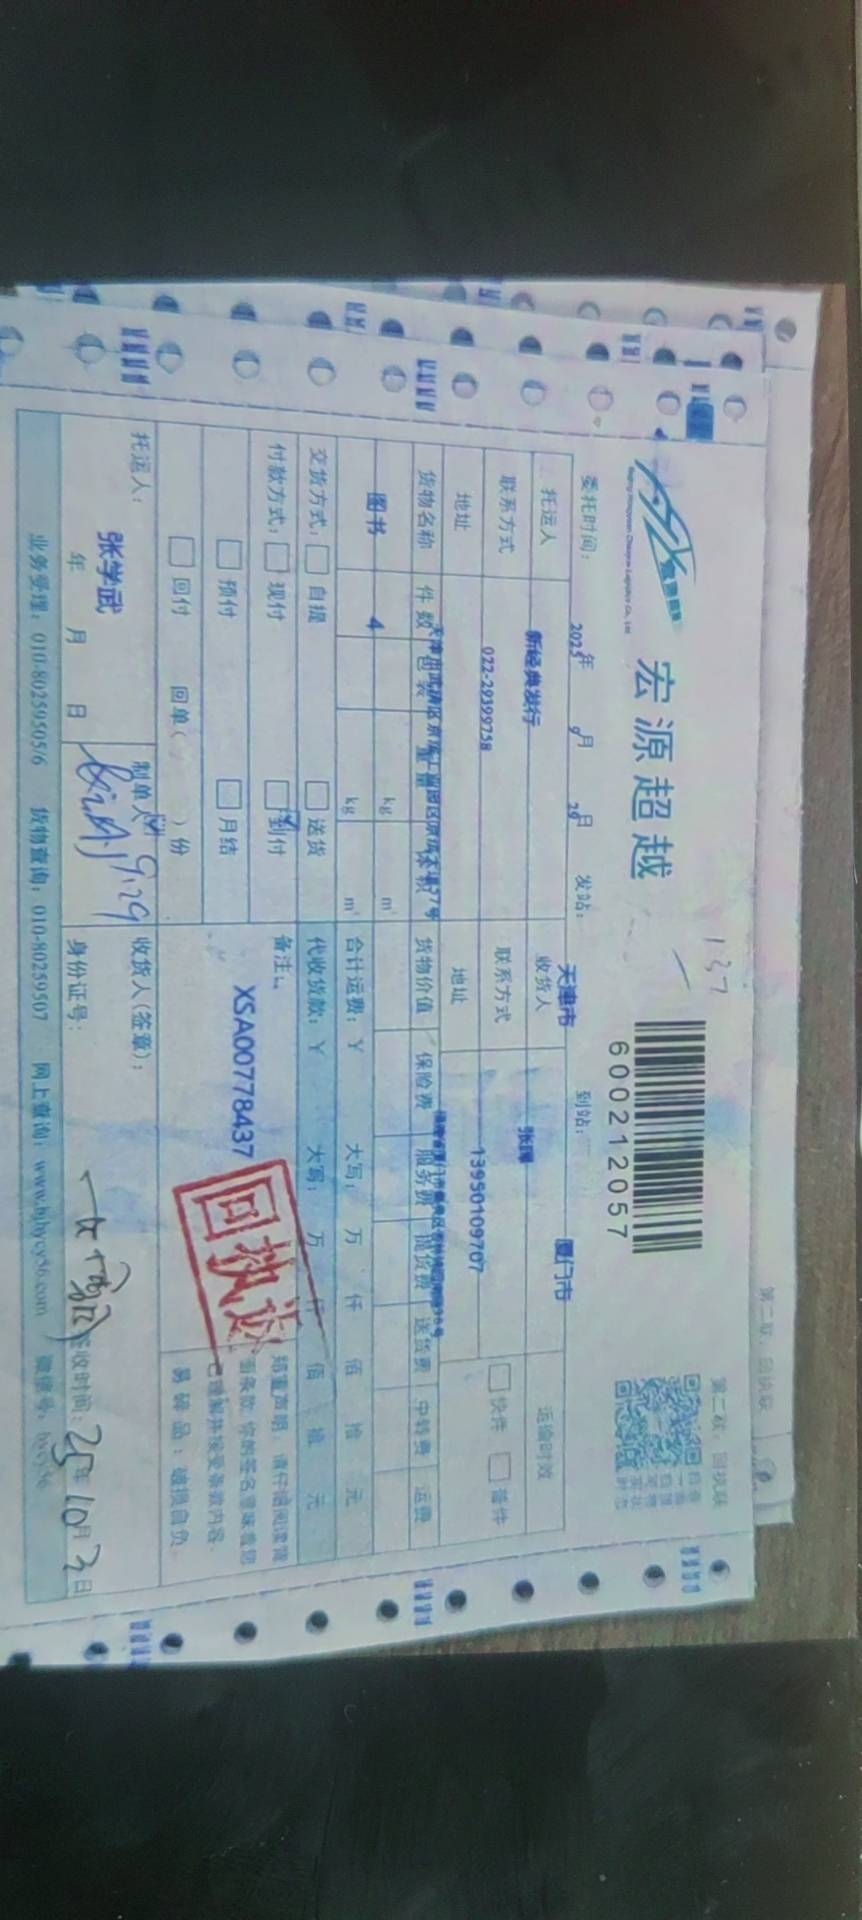 第二联：回执联
第二联：回执联
宏源超越
137
600212057
委托时间： 2025年 9月 29日 发站： 天津市 到站： 厦门市
托运人 新经典发行 收货人 运输时效
联系方式 022-29399758 联系方式 13950109707 快件 普件
地址 地址
货物名称 件数 包装 重量 体积 货物价值 保险费 服务费 提货费 送货费 中转费 运费
图书 4 kg m³
kg m³
合计运费：￥ 大写： 万 仟 佰 拾 元
交货方式： 自提 送货 代收货款：￥ 大写： 万 仟 佰 拾 元
付款方式： 现付 到付 备注：
预付 月结 XSA00778437
回付 回单( )份
回执
郑重声明：请仔细阅读背
面条款，你的签名意味着您
已理解并接受条款内容。
易碎品：破损自负
托运人： 张学武 制单人： 9.29 收货人(签章)：
年 月 日 身份证号： 签收时间： 25年 10月 3日
业务受理：010-80259505/6 货物查询：010-80259507 网上查询：www.bjhycy56.com 微信号：hycy56